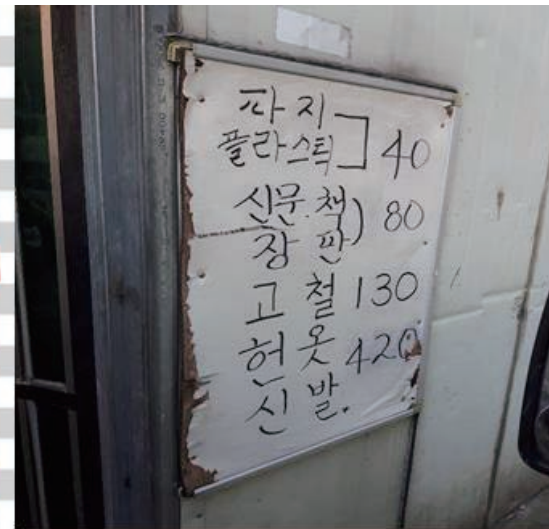 파지
플라스틱 40
신문.책
장판 80
고철 130
헌옷 420
신발.